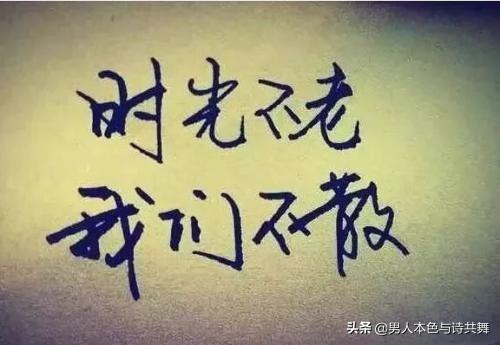 时光不老
我们不散
头条 @男人本色与诗共舞